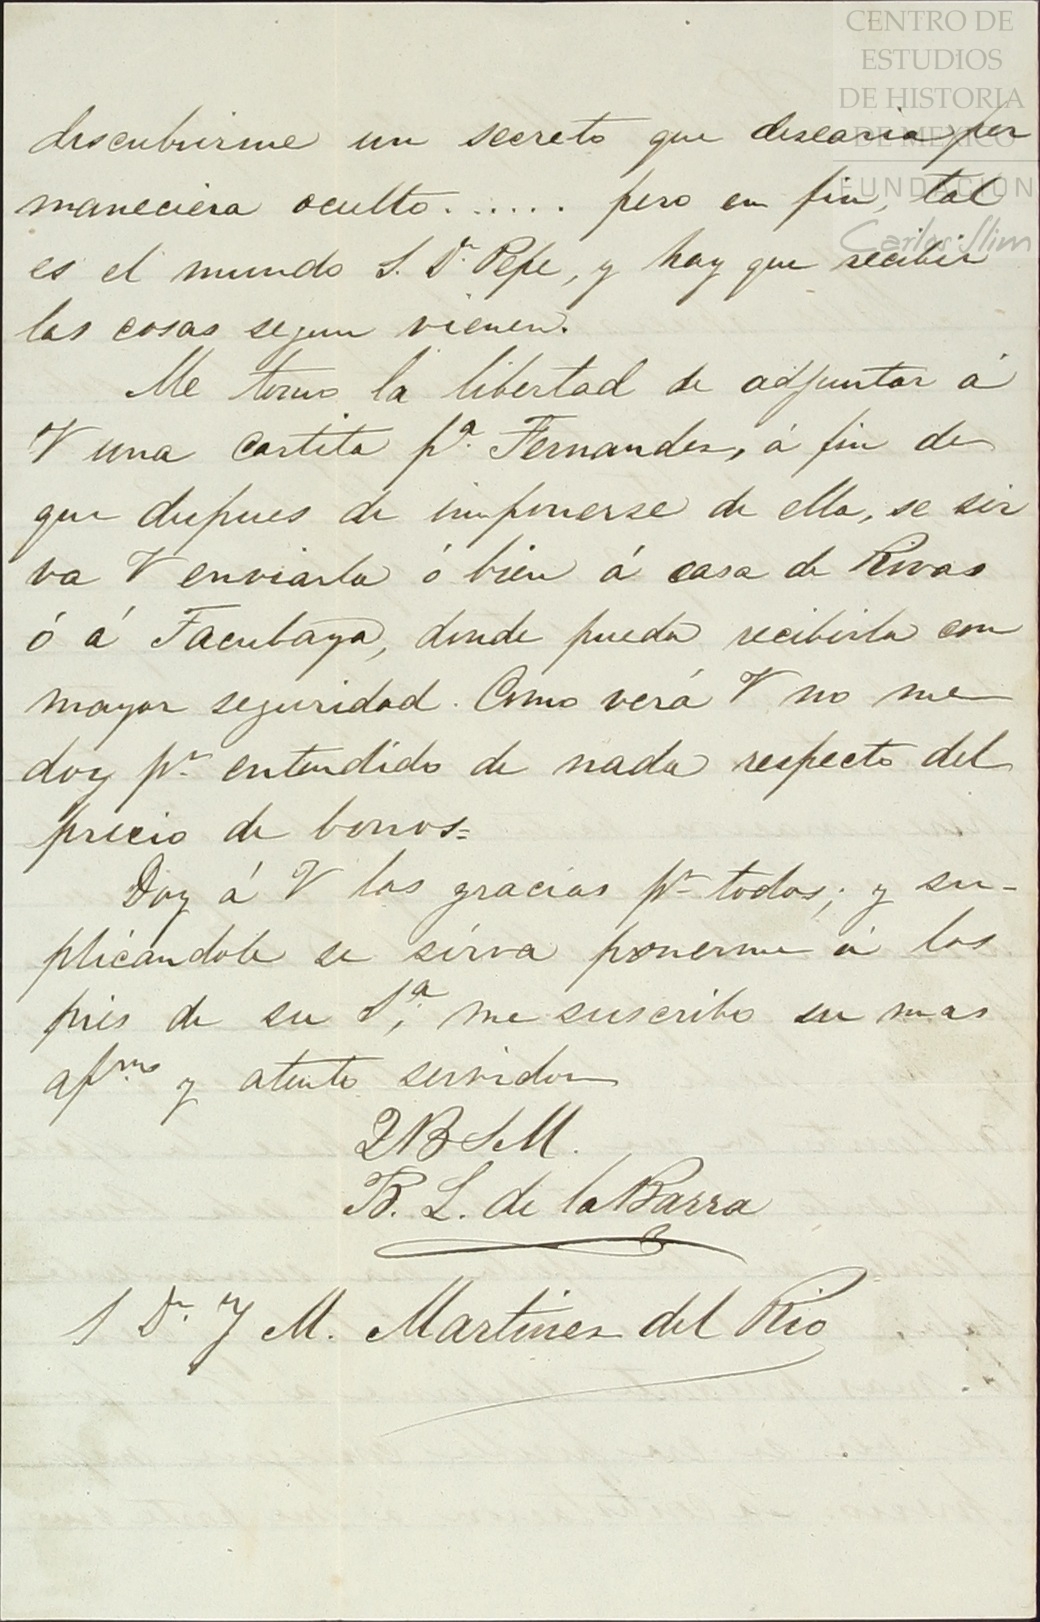 CENTRO DE
ESTUDIOS
DE HISTORIA
DE MEXICO
FUNDACION
Carlos Slim
descubrirme un secreto que desearia per
maneciera oculto...... pero en fin, tal
es el mundo S. Dn. Pepe, y hay que recibir
las cosas segun vienen.
Me tomo la libertad de adjuntar á
V una cartita pa. Fernandez, á fin de
que depues de imponerse de ella, se sir
va V enviarla ó bien á casa de Rivas
ó á Tacubaya, donde pueda recibirla con
mayor seguridad. Como verá V no me
doy pr. entendido de nada respecto del
precio de bonos=
Doy á V las gracias pr. todos; y su-
plicándole se sirva ponerme á los
piés de su Sa., me suscribo su mas
afmo. y atento servidor
QBSM.
B. L. de la Barra
S Dn. J M. Martinez del Rio